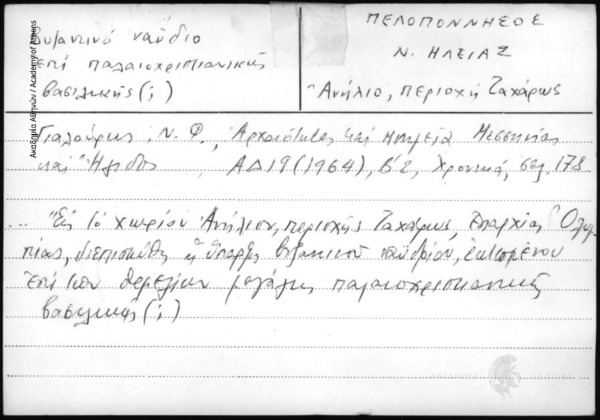 Βυζαντινό ναΰδιο
ἐπί παλαιοχριστιανικῆς
βασιλικῆς (;)
ΠΕΛΟΠΟΝΝΗΣΟΣ
Ν. ΗΛΕΙΑΣ
Ἀνήλιο, περιοχή Ζαχάρως
Ακαδημία Αθηνών / Academy of Athens
Γιαλούρης, Ν. Φ., Ἀρχαιότητες καί μνημεῖα Μεσσηνίας
καί Ἤλιδος, ΑΔ 19 (1964), Β'2, Χρονικά, σελ. 178
... "Εἰς τό χωρίον Ἀνήλιον, περιοχῆς Ζαχάρως, ἐπαρχίας Ὀλυμ
πίας, διεπιστώθη ἡ ὕπαρξις βυζαντινοῦ ναϋδρίου, ἐκτισμένου
ἐπί τῶν θεμελίων μεγάλης παλαιοχριστιανικῆς
βασιλικῆς (;)